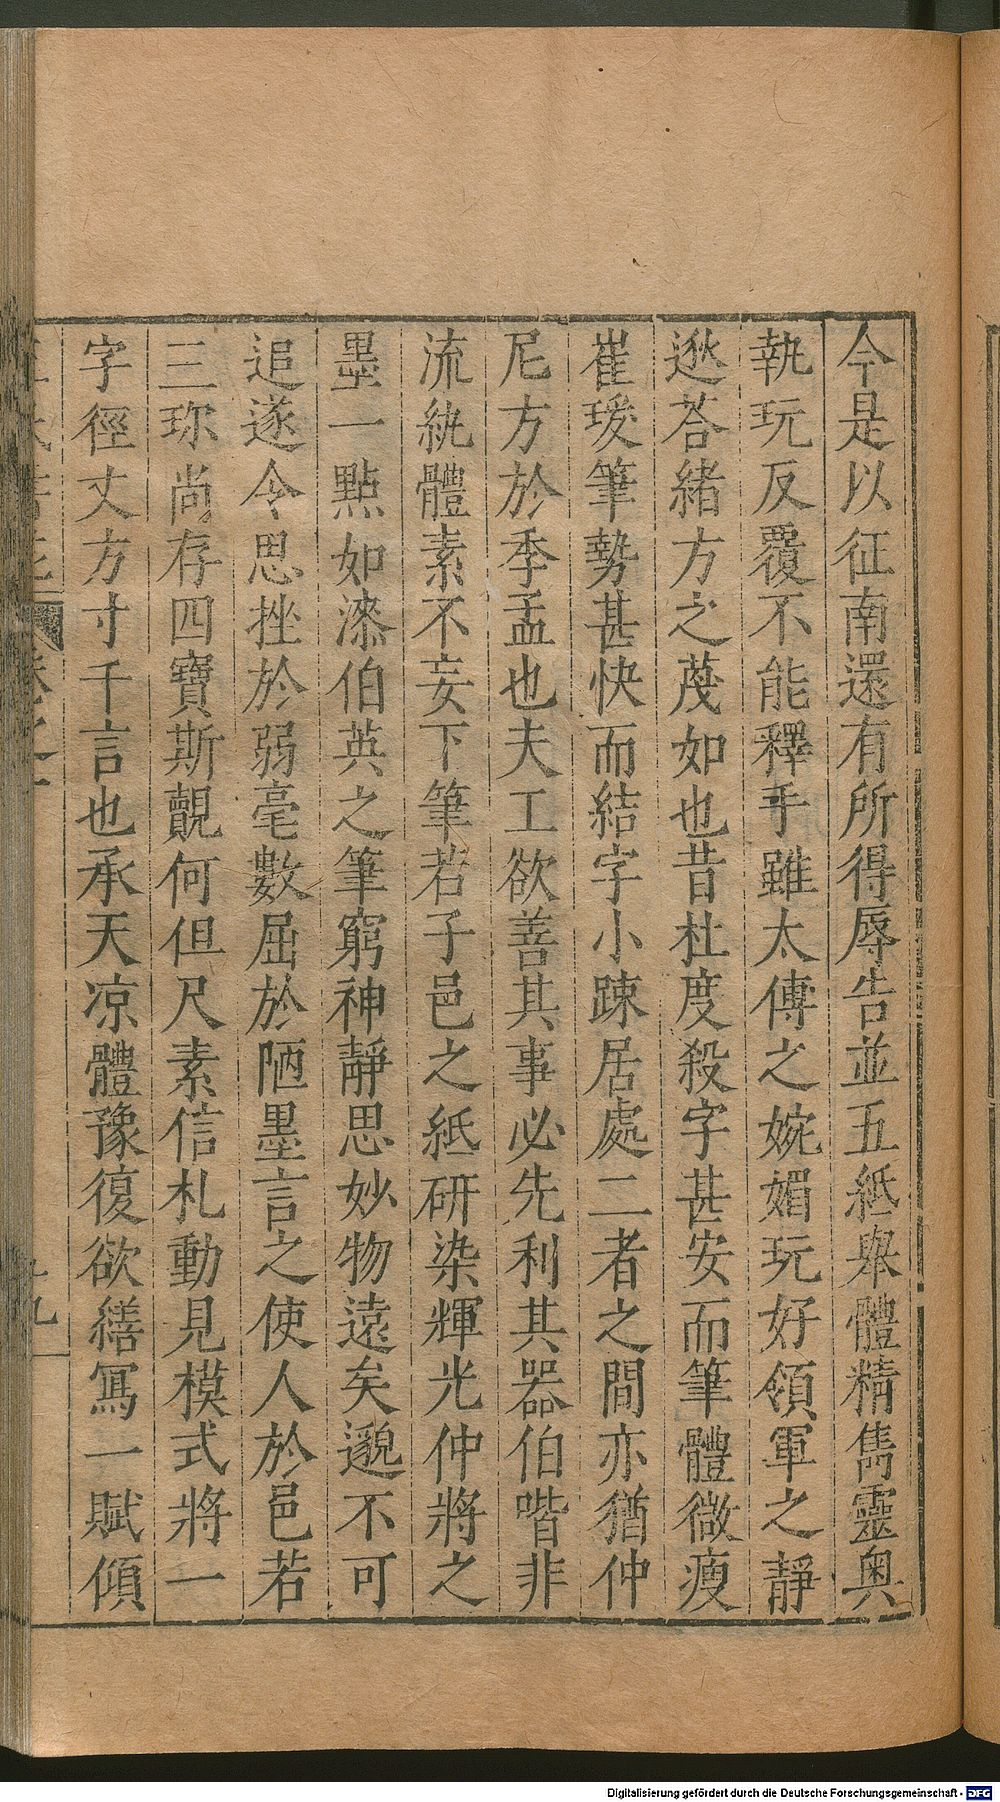 今是以征南還有所得辱告並五紙舉體精雋靈奥
執玩反覆不能釋手雖太傅之婉媚玩好領軍之靜
逖荅緒方之蔑如也昔杜度殺字甚安而筆體微瘦
崔瑗筆勢甚快而結字小踈居處二者之間亦猶仲
尼方於季孟也夫工欲善其事必先利其器伯喈非
流紈體素不妄下筆若子邑之紙研染輝光仲將之
墨一點如漆伯英之筆窮神靜思妙物遠矣邈不可
追遂令思挫於弱毫數屈於陋墨言之使人於邑若
三珎尚存四寶斯覿何但尺素信札動見模式將一
字徑丈方寸千言也承天凉體豫復欲繕寫一賦傾
九
Digitalisierung gefördert durch die Deutsche Forschungsgemeinschaft - DFG